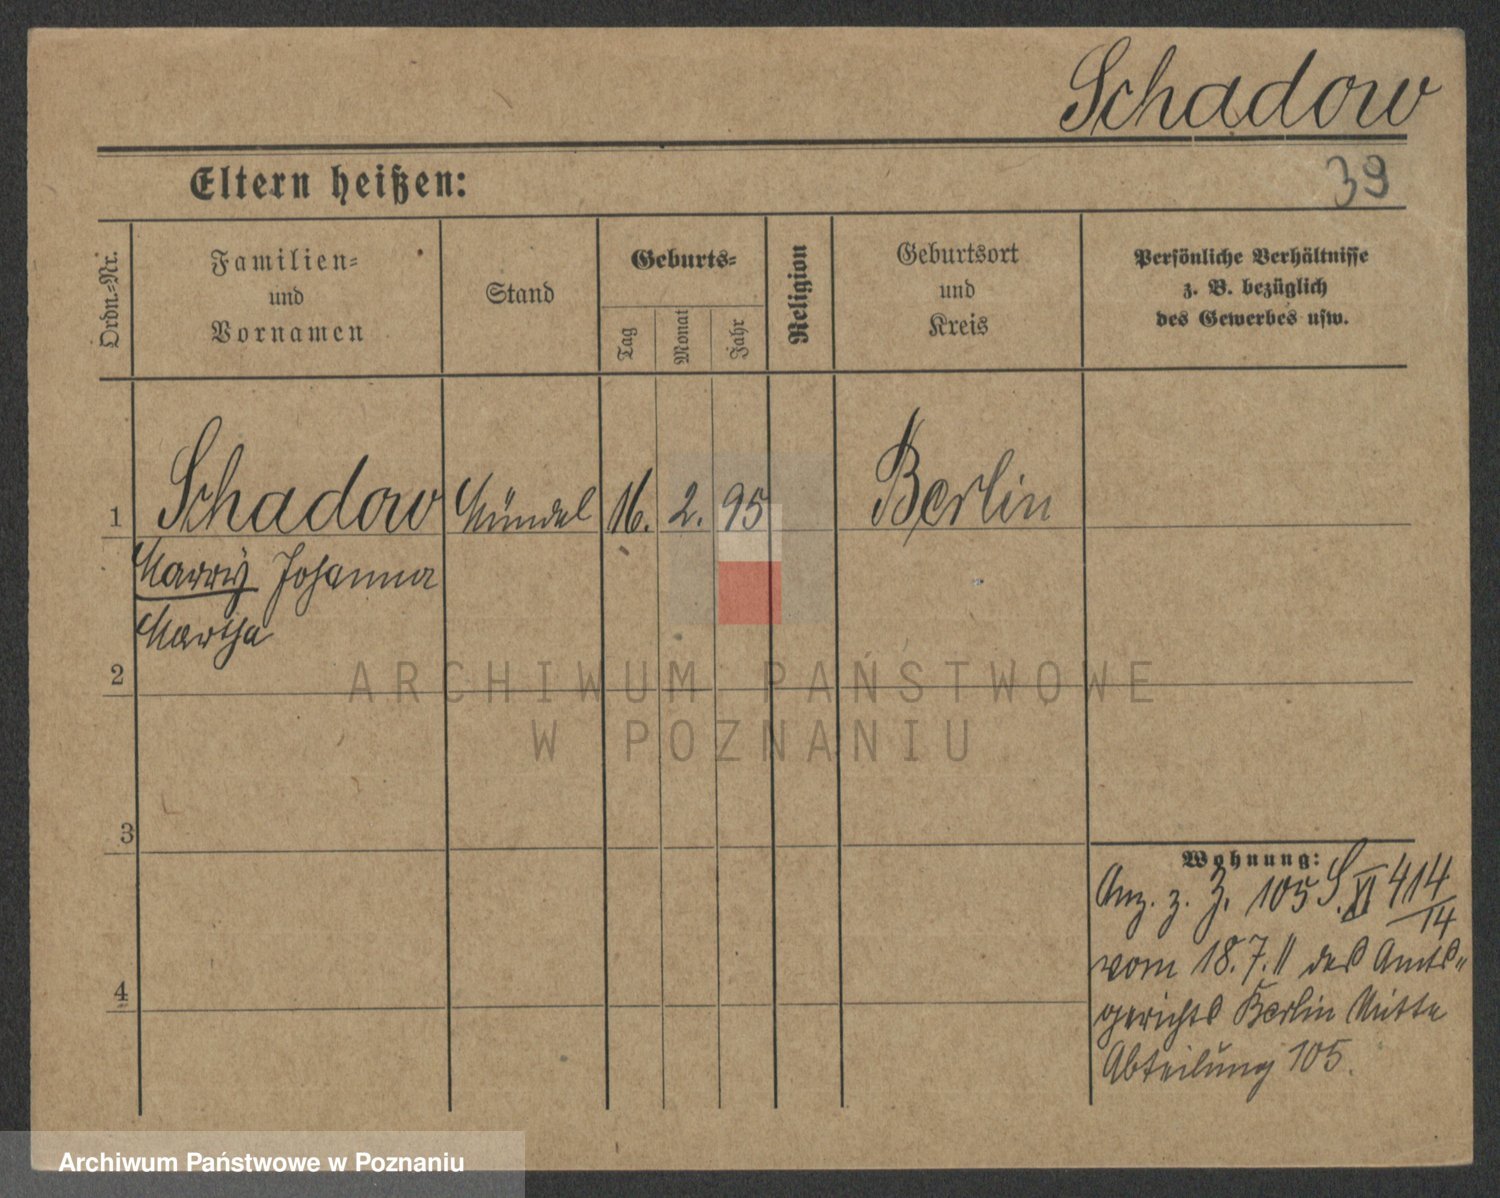 Schadow
39
Eltern heißen:
Ordn.=Nr.
Familien=
und
Vornamen
Stand
Geburts=
Tag
Monat
Jahr
Religion
Geburtsort
und
Kreis
Persönliche Verhältnisse
z. B. bezüglich
des Gewerbes usw.
1 Schadow Mündel 16. 2. 95 Berlin
Johanna
Martha
2
3
4
Wohnung:
z. Z. 105 S. XI 414/14
vom 18.7.11 des Amts=
gerichts Berlin Mitte
Abteilung 105.
ARCHIWUM PAŃSTWOWE
W POZNANIU
Archiwum Państwowe w Poznaniu